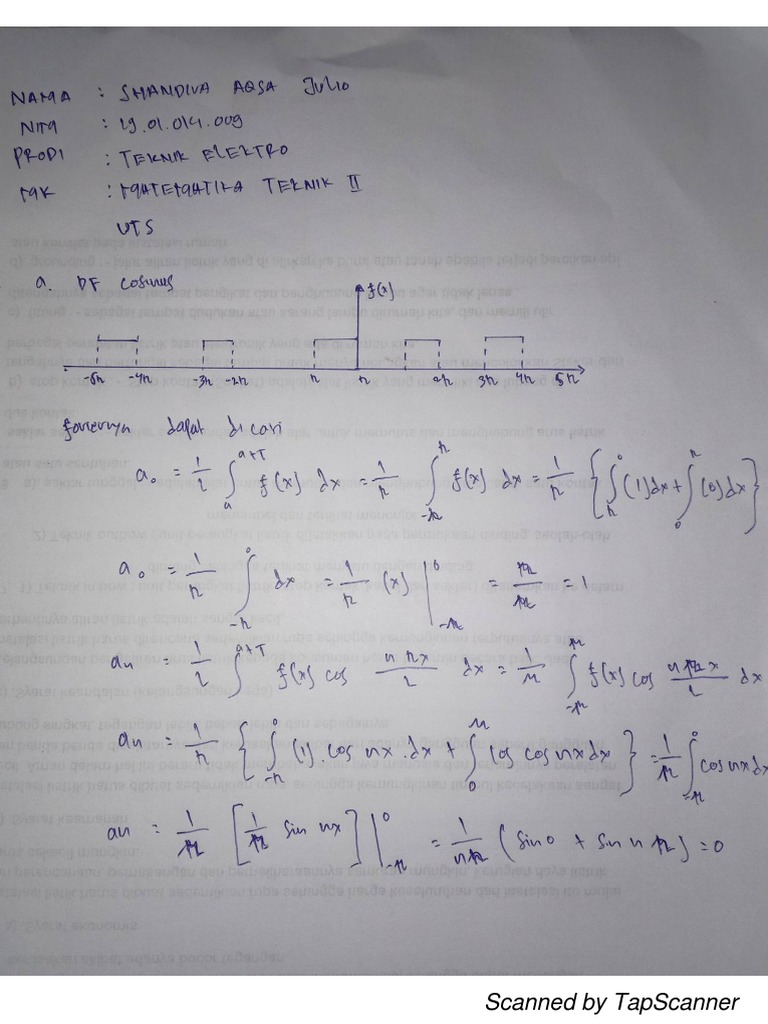 NAMA : SHANDIVA AQSA Julio
NIM : 19.01.014.009
PRODI : TEKNIK ELEKTRO
MK : MATEMATIKA TEKNIK II
UTS
a. DF Cosinus
f(x)
-5π -4π -3π -2π π π 2π 3π 4π 5π
fouriernya dapat di cari
a₀ = 1/L ∫_a^{a+T} f(x) dx = 1/π ∫_{-π}^{π} f(x) dx = 1/π { ∫_π^0 (1) dx + ∫_0^π (0) dx }
a₀ = 1/π ∫_{-π}^0 dx = 1/π (x) |_{-π}^0 = π/π = 1
an = 1/L ∫_a^{a+T} f(x) cos nπx/L dx = 1/π ∫_{-π}^{π} f(x) cos nπx/L dx
an = 1/π { ∫_{-π}^0 (1). cos nx .dx + ∫_0^π (0) cos nx dx } = 1/π ∫_{-π}^0 cos nx dx
an = 1/π [ 1/π sin nx ] |_{-π}^0 = 1/nπ ( sin 0 + sin nπ ) = 0
Scanned by TapScanner